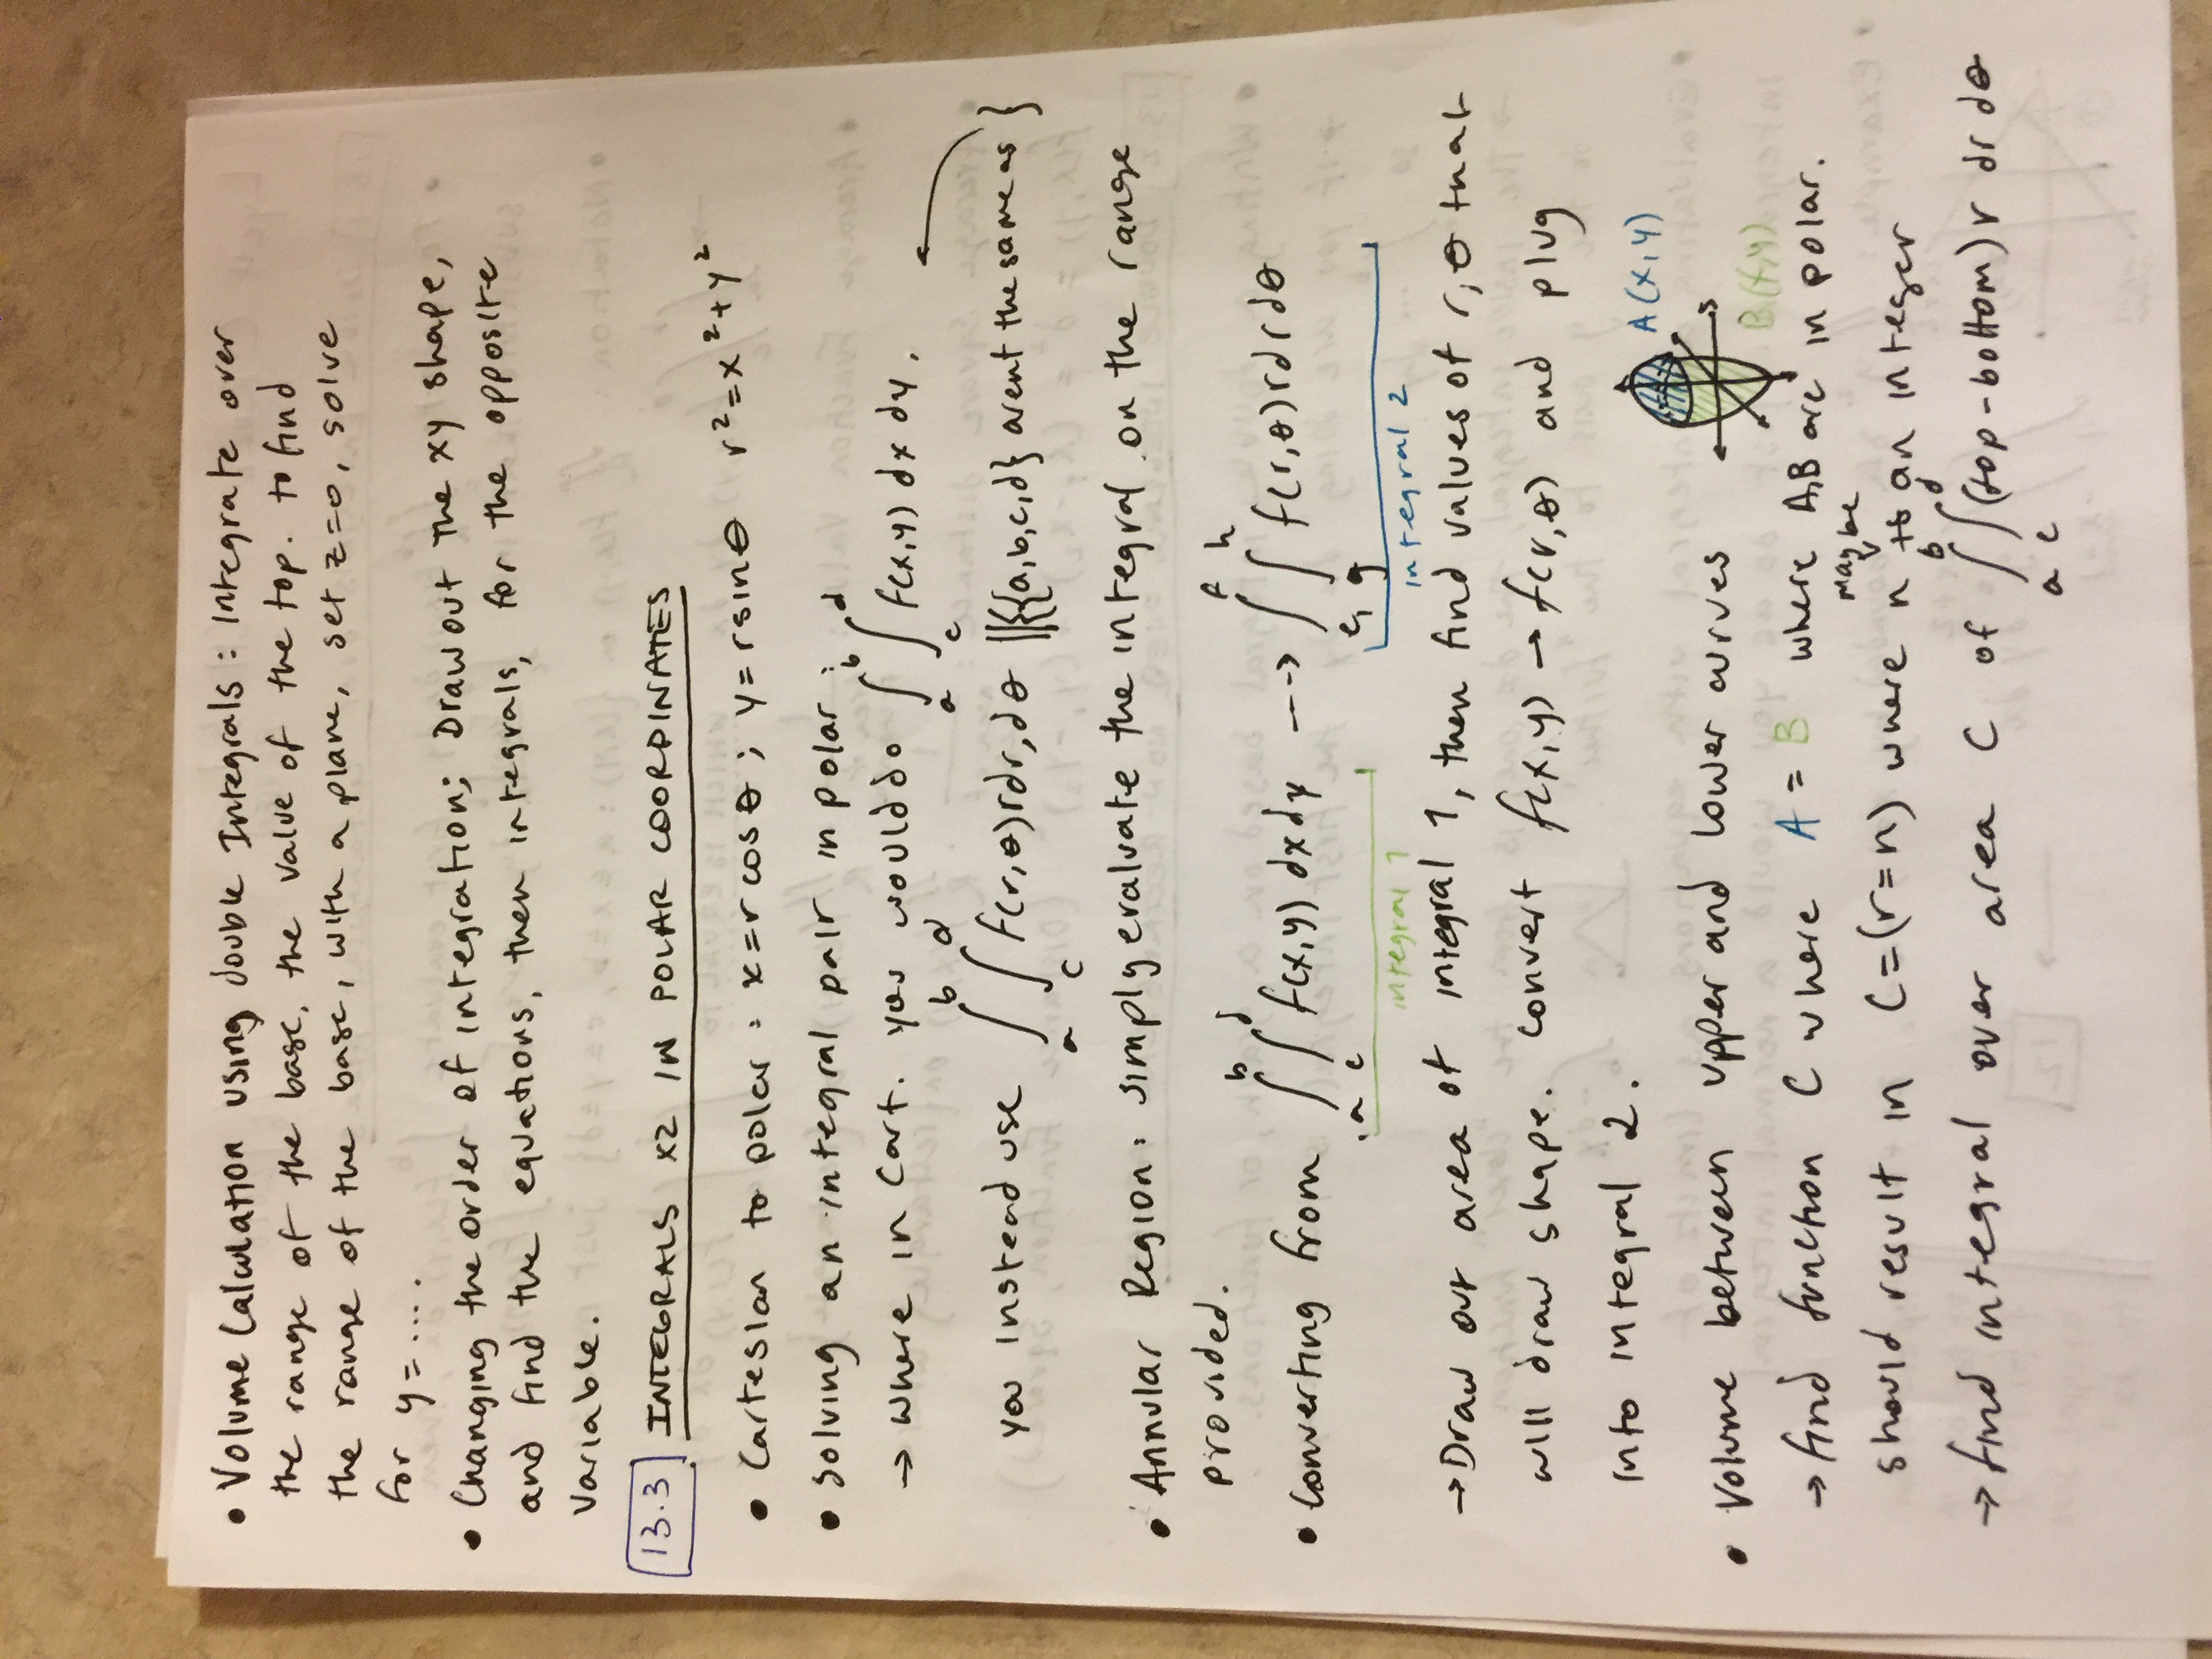 • Volume Calculation using double Integrals : Integrate over
the range of the base, the value of the top. to find
the range of the base, with a plane, set z=0, solve
for y = ....
• Changing the order of integration; Draw out the xy shape,
and find the equations, then integrals, for the opposite
variable.
13.3 INTEGRALS x2 IN POLAR COORDINATES
• Cartesian to polar : x=rcosθ ; y=rsinθ r²=x²+y²
• Solving an integral pair in polar :
→ where in Cart. you would do ∫_a^b ∫_c^d f(x,y) dx dy.
you instead use ∫_a^b ∫_c^d f(r,θ)rdr,dθ ||{{a,b,c,d} arent the same as }
• Annular Region: simply evaluate the integral on the range
provided.
• Converting from ∫_a^b ∫_c^d f(x,y) dxdy ---> ∫_e^f ∫_g^h f(r,θ)rdrdθ
integral 1 integral 2
→ Draw out area of integral 1, then find values of r,θ that
will draw shape. convert f(x,y) → f(r,θ) and plug
into integral 2.
A(x,y)
• Volume between upper and lower curves
B(x,y)
→ find function C where A = B where A,B are in polar.
should result in C=(r=n) where n maybe an integer
→ find integral over area C of ∫_a^b ∫_c^d (top-bottom) r dr dθ